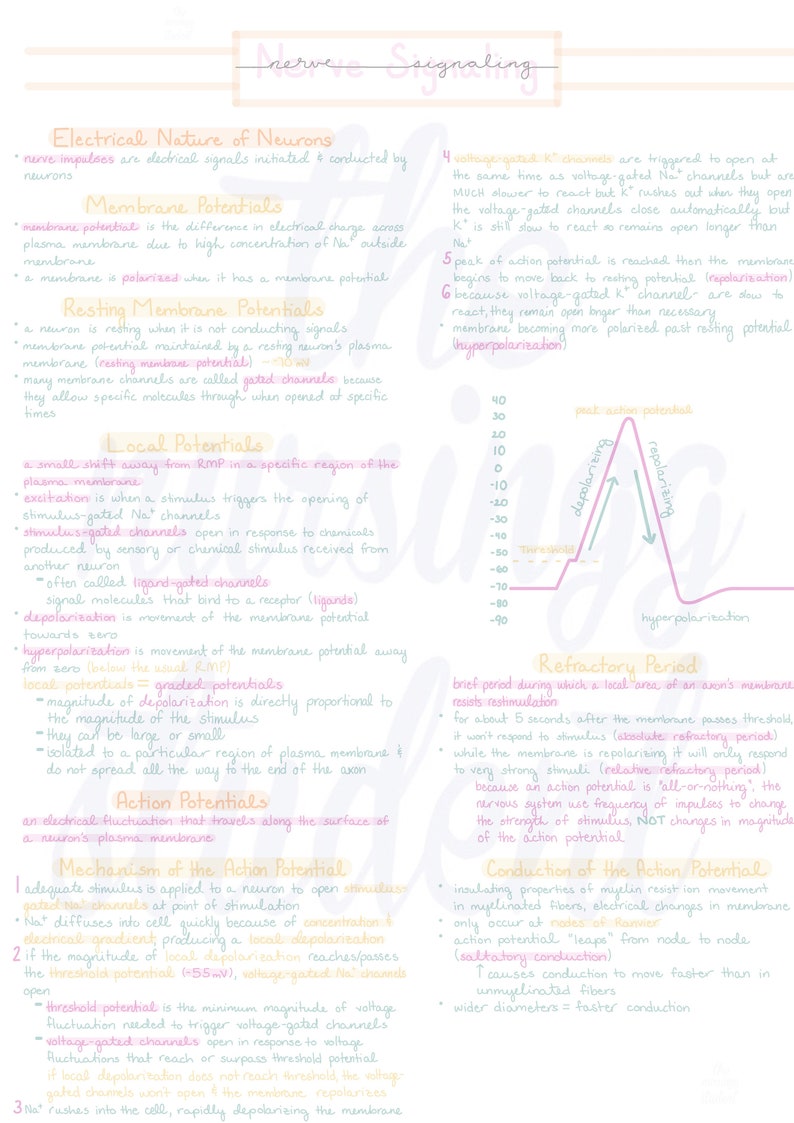 the nursingg student
Nerve Signaling
nerve signaling
Electrical Nature of Neurons
• nerve impulses are electrical signals initiated & conducted by
neurons
Membrane Potentials
• membrane potential is the difference in electrical charge across
plasma membrane due to high concentration of Na⁺ outside
membrane
• a membrane is polarized when it has a membrane potential
Resting Membrane Potentials
• a neuron is resting when it is not conducting signals
• membrane potential maintained by a resting neuron's plasma
membrane (resting membrane potential) ~-70 mV
• many membrane channels are called gated channels because
they allow specific molecules through when opened at specific
times
Local Potentials
a small shift away from RMP in a specific region of the
plasma membrane
• excitation is when a stimulus triggers the opening of
stimulus-gated Na⁺ channels
• stimulus-gated channels open in response to chemicals
produced by sensory or chemical stimulus received from
another neuron
- often called ligand-gated channels
signal molecules that bind to a receptor (ligands)
• depolarization is movement of the membrane potential
towards zero
• hyperpolarization is movement of the membrane potential away
from zero (below the usual RMP)
local potentials = graded potentials
- magnitude of depolarization is directly proportional to
the magnitude of the stimulus
- they can be large or small
- isolated to a particular region of plasma membrane &
do not spread all the way to the end of the axon
Action Potentials
an electrical fluctuation that travels along the surface of
a neuron's plasma membrane
Mechanism of the Action Potential
1 adequate stimulus is applied to a neuron to open stimulus-
gated Na⁺ channels at point of stimulation
• Na⁺ diffuses into cell quickly because of concentration &
electrical gradient, producing a local depolarization
2 if the magnitude of local depolarization reaches/passes
the threshold potential (-55mV), voltage-gated Na⁺ channels
open
- threshold potential is the minimum magnitude of voltage
fluctuation needed to trigger voltage-gated channels
- voltage-gated channels open in response to voltage
fluctuations that reach or surpass threshold potential
if local depolarization does not reach threshold, the voltage-
gated channels won't open & the membrane repolarizes
3 Na⁺ rushes into the cell, rapidly depolarizing the membrane
4 voltage-gated K⁺ channels are triggered to open at
the same time as voltage-gated Na⁺ channels but are
MUCH slower to react but K⁺ rushes out when they open
the voltage-gated channels close automatically but
K⁺ is still slow to react so remains open longer than
Na⁺
5 peak of action potential is reached then the membrane
begins to move back to resting potential (repolarization)
6 because voltage-gated K⁺ channel- are slow to
react, they remain open longer than necessary
• membrane becoming more polarized past resting potential
(hyperpolarization)
40
30
20
10
0
-10
-20
-30
-40
-50
-60
-70
-80
-90
peak action potential
depolarizing
repolarizing
Threshold
hyperpolarization
Refractory Period
brief period during which a local area of an axon's membrane
resists restimulation
• for about 5 seconds after the membrane passes threshold,
it won't respond to stimulus (absolute refractory period)
• while the membrane is repolarizing it will only respond
to very strong stimuli (relative refractory period)
because an action potential is "all-or-nothing", the
nervous system use frequency of impulses to change
the strength of stimulus, NOT changes in magnitude
of the action potential
Conduction of the Action Potential
• insulating properties of myelin resist ion movement
in myelinated fibers, electrical changes in membrane
• only occur at nodes of Ranvier
• action potential "leaps" from node to node
(saltatory conduction)
↑ causes conduction to move faster than in
unmyelinated fibers
• wider diameters = faster conduction
the nursingg student
the nursingg student